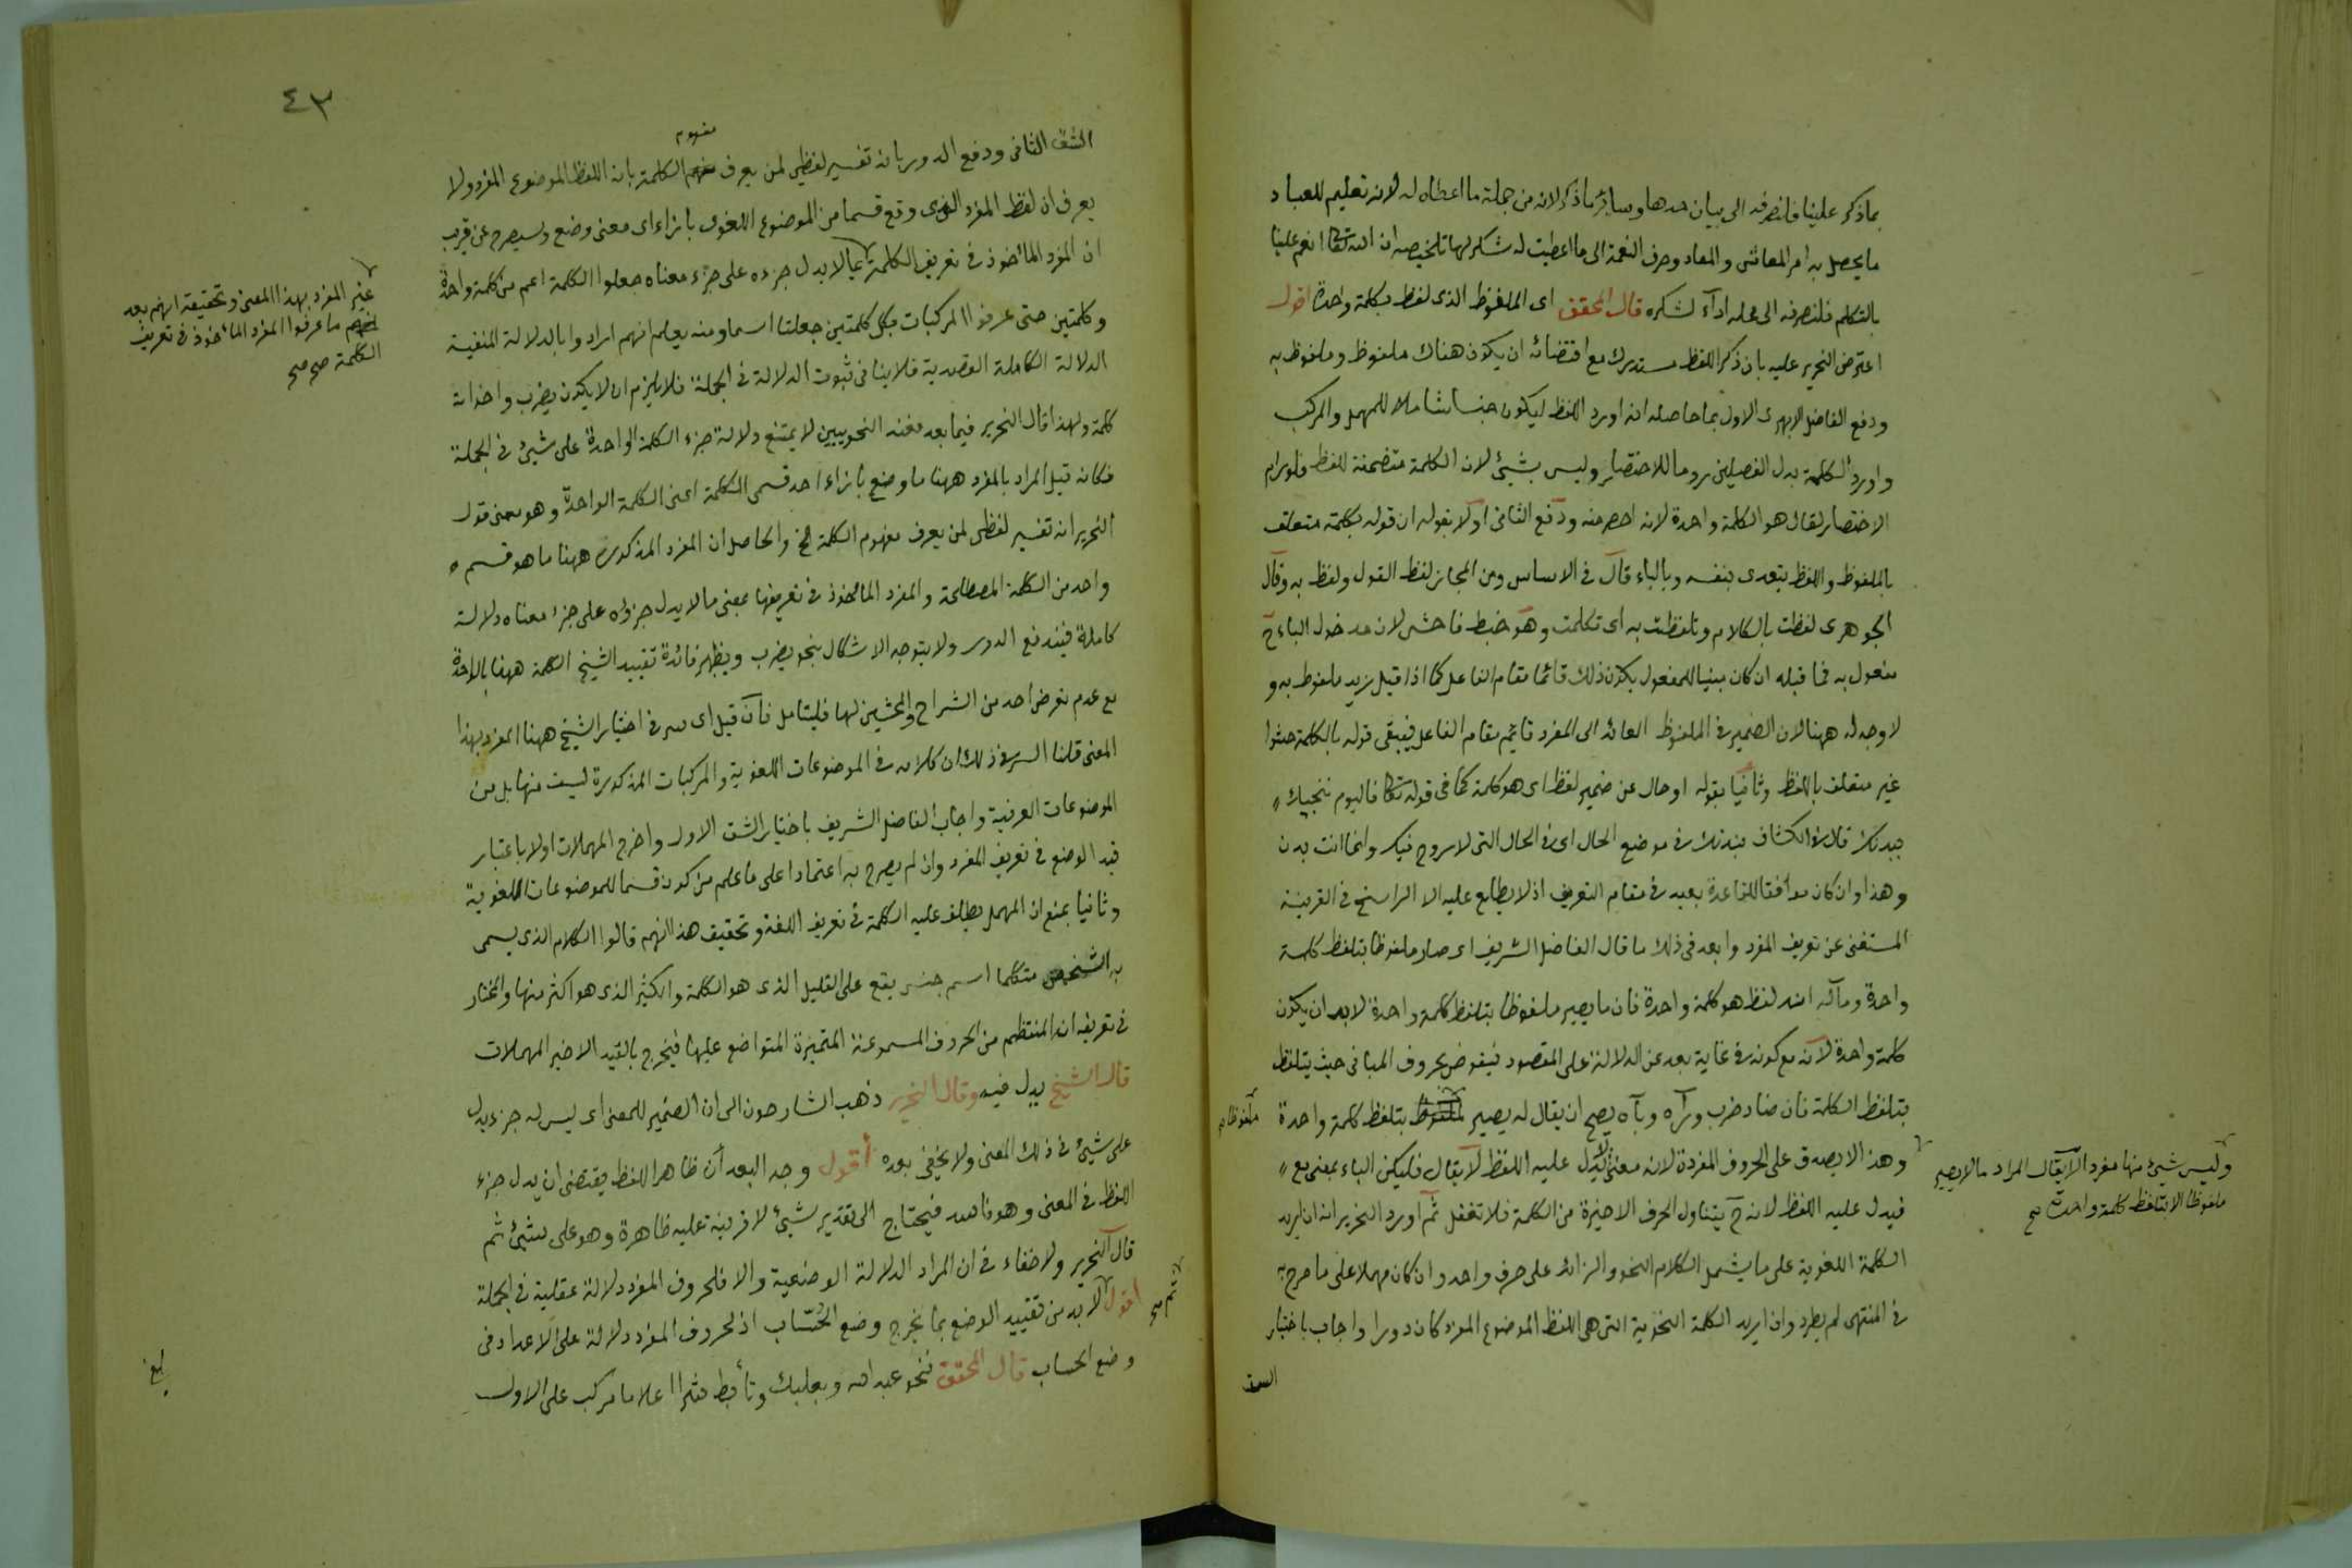 بما ذكر علينا فلنصرفه الى بيان حدها وسائر ما ذكر لانه من جملة ما اعطاه له لانه تعليم للعباد
ما يحصل به امر المعاش والمعاد وصرف النعمة الى ما اعطيت له شكر لها تلخيصه ان الله تعالى انعم علينا
بالتكلم فلنصرفه الى محله اداء لشكره قال المحقق اى الملفوظ الذى لفظ بكلمة واحدة اقول
اعترض النحرير عليه بان ذكر اللفظ مستدرك مع اقتضائه ان يكون هناك ملفوظ وملفوظ به
ودفع الفاضل الابهرى الاول بما حاصله انه اورد اللفظ ليكون جنسا شاملا للمهمل والمركب
واورد الكلمة بدل الفصيلين روما للاختصار وليس بشيئ لان الكلمة متضمنة للفظ فلو رام
الاختصار لقال هو الكلمة واحدة لانه اخصر منه ودفع الثانى اولا بقوله ان قوله بكلمة متعلق
بالملفوظ واللفظ يتعدى بنفسه وبالباء قال فى الاساس ومن المجاز لفظ القول ولفظ به وقال
الجوهرى لفظت بالكلام وتلفظت به اى تكلمت وهو خبط فاحش لان مدخول الباء ح
مفعول به فما قبله ان كان مبنيا للمفعول يكون ذلك قائما مقام الفاعل كما اذا قيل زيد ملفوظ به و
لا وجه له ههنا لان الضمير فى الملفوظ العائد الى المفرد قائم مقام الفاعل فيبقى قوله بالكلمة حشوا
غير متعلق باللفظ وثانيا بقوله او حال عن ضمير لفظ اى هو كلمة كما فى قوله تعالى فاليوم ننجيك
ببدنك قال فى الكشاف ببدنك فى موضع الحال اى فى الحال التى لا روح فيك وانما انت بدن
وهذا وان كان موافقا للقاعدة بعيد فى مقام التعريف اذ لا يطلع عليه الا الراسخ فى العربية
المستغنى عن تعريف المفرد وابعد فى ذلك ما قال الفاضل الشريف اى صار ملفوظا بتلفظ كلمة
واحدة ومآله انه لفظ هو كلمة واحدة فان ما يصير ملفوظا بتلفظ كلمة واحدة لابد ان يكون
كلمة واحدة لانه مع كونه فى غاية بعد عن الدلالة على المقصود منقوض بحروف المبانى حيث يتلفظ
بتلفظ الكلمة فان ضاد ضرب وراءه وباءه يصح ان يقال له يصير ملفوظ بتلفظ كلمة واحدة
ملفوظا صح
وهذا لا يصدق على الحروف المفردة لانه معنى لا يدل عليه اللفظ لا يقال فليكن الباء بمعنى مع
وليس شيئ منها مفردا لا يقال المراد ما لا يصير
ملفوظا الا بتلفظ كلمة واحدة صح
فيدل عليه اللفظ لانه ح يتناول الحرف الاخيرة من الكلمة فلا تغفل ثم اورد النحرير انه ان اريد
الكلمة اللغوية على ما يشمل الكلام النحو والزائد على حرف واحد وان كان مهملا على ما صرح به
فى المنتهى لم يطرد وان اريد الكلمة النحوية التى هى اللفظ الموضوع المفرد كان دورا واجاب باختيار
الشق
٤٣
الشق الثانى ودفع الدور بانه تفسير لفظى لمن يعرف الكلمة بانه اللفظ الموضوع المفرد ولا
مفهوم
يعرف ان لفظ المفرد الذى وقع قسما من الموضوع اللغوى بازاء اى معنى وضع وسيصرح عن قريب
ان المفرد المأخوذ فى تعريف الكلمة بما لا يدل جزءه على جزء معناه جعلوا الكلمة اعم من كلمة واحدة
غير المفرد بهذا المعنى وتحقيقه انهم بعد
ما عرفوا المفرد المأخوذ فى تعريف
الكلمة صح صح
وكلمتين حتى عرفوا المركبات بكل كلمتين جعلتا اسما ومنه يعلم انهم ارادوا بالدلالة المنفية
الدلالة الكاملة القصدية فلا ينافى ثبوت الدلالة فى الجملة فلا يلزم ان لا يكون يضرب واخواته
كلمة ولهذا قال النحرير فيما بعد فعند النحويين لا يمتنع دلالة جزء الكلمة الواحدة على شيئ فى الجملة
فكانه قيل المراد بالمفرد ههنا ما وضع بازاء احد قسمى الكلمة اعنى الكلمة الواحدة وهو معنى قول
النحرير انه تفسير لفظى لمن يعرف مفهوم الكلمة الخ والحاصل ان المفرد المذكور ههنا ما هو قسم
واحد من الكلمة المصطلحة والمفرد المأخوذ فى تعريفها بمعنى ما لا يدل جزؤه على جزء معناه دلالة
كاملة فيندفع الدور ولا يتوجه الاشكال بنحو يضرب ويظهر فائدة تقييد الشيخ الكلمة ههنا بالواحدة
مع عدم تعرض احد من الشراح والمحشين لها فليتامل فان قيل اى سر فى اختيار الشيخ ههنا المفرد بهذا
المعنى قلنا السر فى ذلك ان كلامه فى الموضوعات اللغوية والمركبات المذكورة ليست منها بل من
الموضوعات العرفية واجاب الفاضل الشريف باختيار الشق الاول واخرج المهملات اولا باعتبار
قيد الوضع فى تعريف المفرد وان لم يصرح به اعتمادا على ما علم من كونه قسما للموضوعات اللغوية
وثانيا بمنع ان المهمل يطلق عليه الكلمة فى تعريف اللغة وتحقيق هذا انهم قالوا الكلام الذى يسمى
به الشخص متكلما اسم جنس يقع على القليل الذى هو الكلمة والكثير الذى هو اكثر منها والمختار
فى تعريفه انه المنتظم من الحروف المسموعة المتميزة المتواضع عليها فيخرج بالقيد الاخير المهملات
قال الشيخ يدل فيه وقال النحرير ذهب الشارحون الى ان الضمير للمعنى اى ليس له جزء يدل
على شيئ فى ذلك المعنى ولا يخفى بعده أقول وجه البعد أن ظاهر اللفظ يقتضى ان يدل جزء
اللفظ فى المعنى وهو فاسد فيحتاج الى تقدير شيئ لا قرينة عليه ظاهرة وهو على شيئ ثم
قال النحرير ولا خفاء فى ان المراد الدلالة الوضعية والا فلحروف المفرد دلالة عقلية فى الجملة
اقول لا بد من تقييد الوضع بما يخرج وضع الحُسّاب اذ لحروف المفرد دلالة على الاعداد فى
وضع الحساب قال المحقق فنحو عبد الله وبعلبك وتأبط شرا اعلاما مركب على الاول